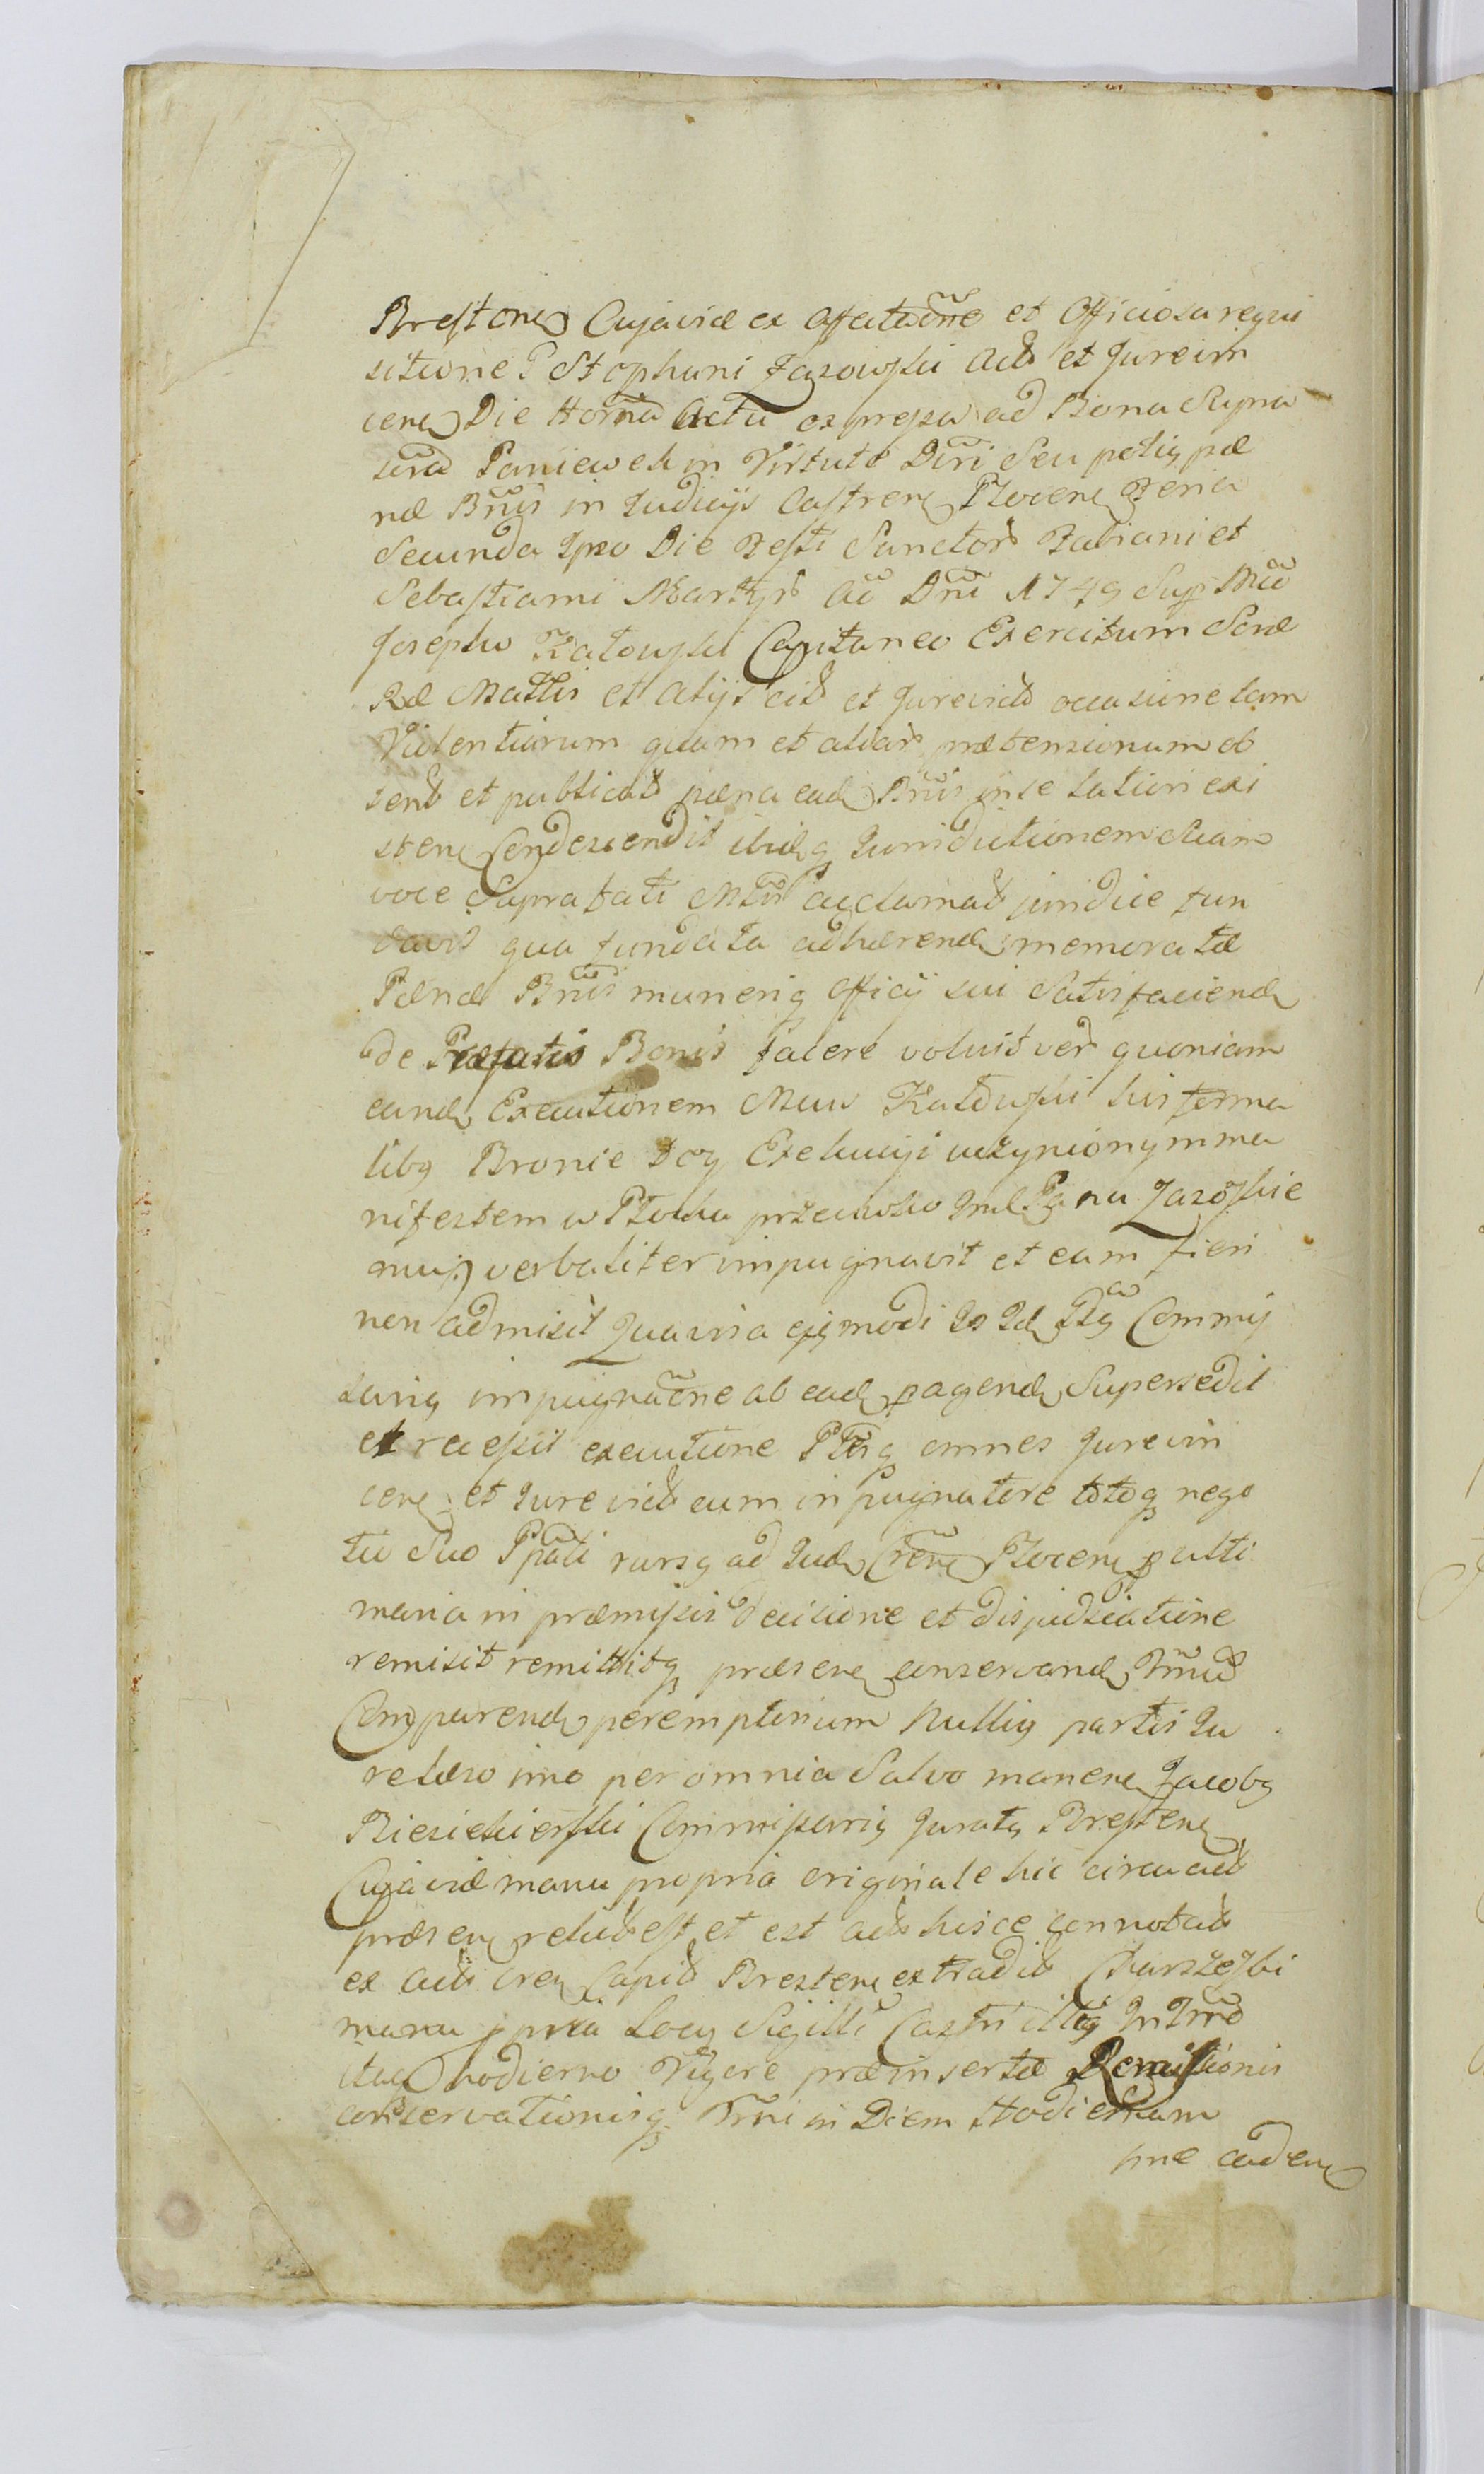 Brestens Cujaviæ ex affectatione et Officiosa requi
sitione G Stephani Jazowski Actis et Jurevin
cens Die Horna Actu expressa ad Bona Supra
Paniewek in Virtute Dñi Seu potius pæ
næ Bñis in Judicijs Castrens Plocens Feria
Secunda Ipso Die Festi Sanctor Fabiani et
Sebastiani Martyr Aõ Dñi 1749 Sup Mco
Josepho Katowski Capitaneo Exercituum Sere
Ræ Mattis et Alijs cit et Jurevict occasione tam
Violentiarum quam et aliar prætensionum ob
tent et publicat pæna ead Bñis in se latiori exi
stens Condescendit ibidq Jurisdictionem Suam
voce Suprafati Mtri acclamat juridice fun
davit qua fundata adhærend memoratæ
Pænæ Bñis munerisq officij sui Satisfaciend
de Præfatis Bonis facere voluit ver quoniam
eand Executionem Mcus Katowski his forma
libq Bronie tey Exekucyi uczynionym ma
nifestem w Plocku przeciwko Jmć Panu Jazowskie
mu verbaliter impugnavit et eam fieri
non admisit Quavis ejqmodi Commis
sariq impugnaõne ab ead pagend Supersedit
et recessit executione Ptesq omnes Jurevin
cens et Jurevict cum inpugnatore totoq nego
tio Suo Pñali rursq ad Jud Crens Plocens p ulti
maria in præmissis decisione et dispudicatione
remisit remittitq præsens conservand Tmũ
Comparend peremptorium Nulliq partis Ju
re læso imo per omnia Salvo manens Jacobq
Biesiekierski Commissariq Juratq Brestens
Cujaviæ manu propria originale hic circa act
præsens relict est et est actis hisce connotat
ex Actis Cren Capit Brestens extradit Charszewski
manu ppria Locq Sigilli Castri illiq In Tmõ
itaq hodierno Vigore præinsertæ Remissionis
conservationisq Tmi in Diem Hodiernam
præ cadens